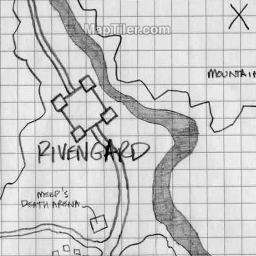 MapTiler.com
MOUNTAIN
RIVENGARD
MEEP'S
DEATH ARENA